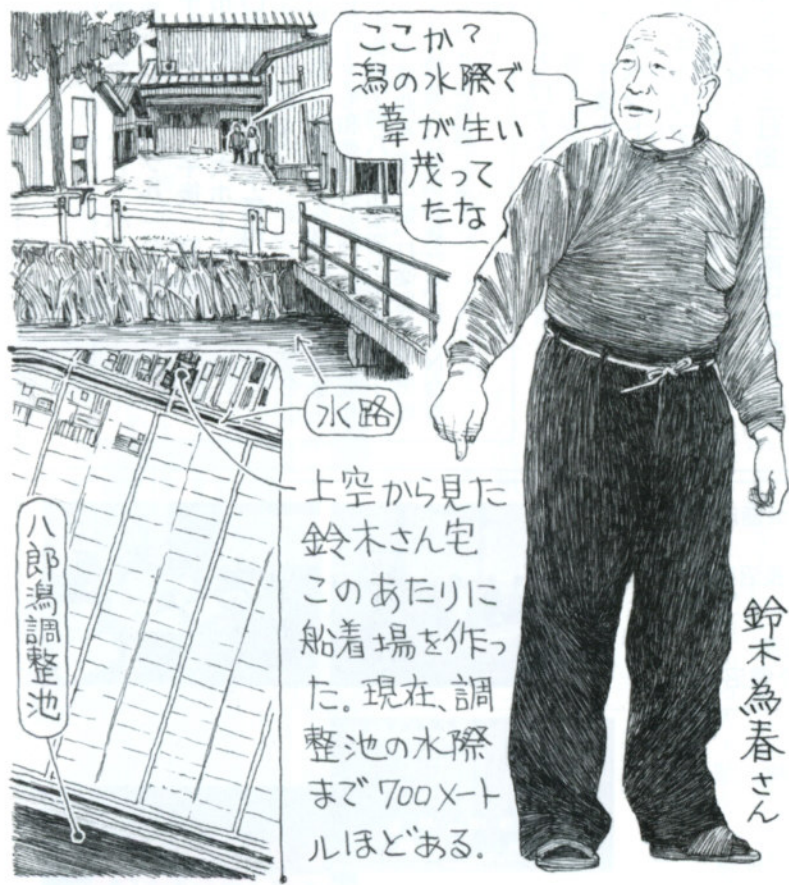 ここか?
潟の水際で
葦が生い
茂って
たな
水路
上空から見た
鈴木さん宅
このあたりに
船着場を作っ
た。現在、調
整池の水際
まで700メート
ルほどある.
八郎潟調整池
鈴木為春さん